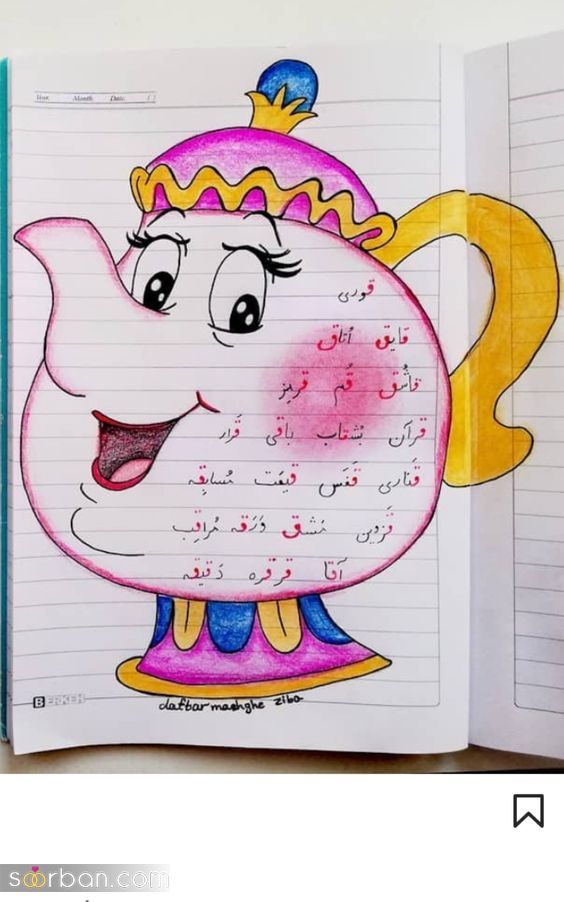 Year. Month. Date. ( )
قوری
قایق اُتاق
قاشُق قُم قرمز
قرآن بُشقاب باقی قَرار
قَناری قَفَس قیمَت مُسابِقه
قَزوین مَشق وَرَقه مُراقِب
آقا قرقره دَقیقه
BERKEH
daftar mashghe ziba
soorban.com